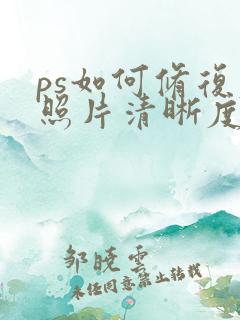 ps如何修復
照片清晰度
邹晓云
未经同意禁止转载